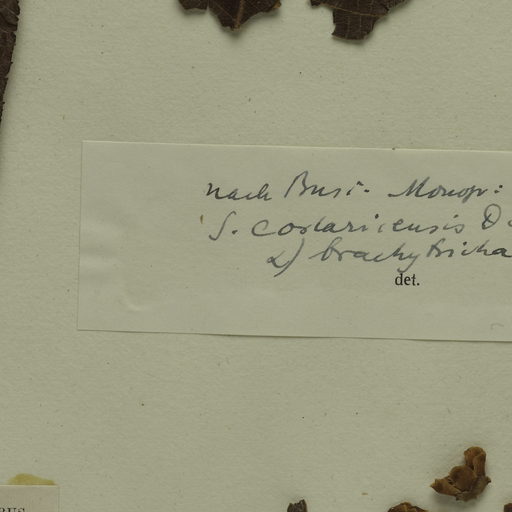 nach Busc. Monogr:
S. costaricensis D
α) brachytricha
det.
RUS